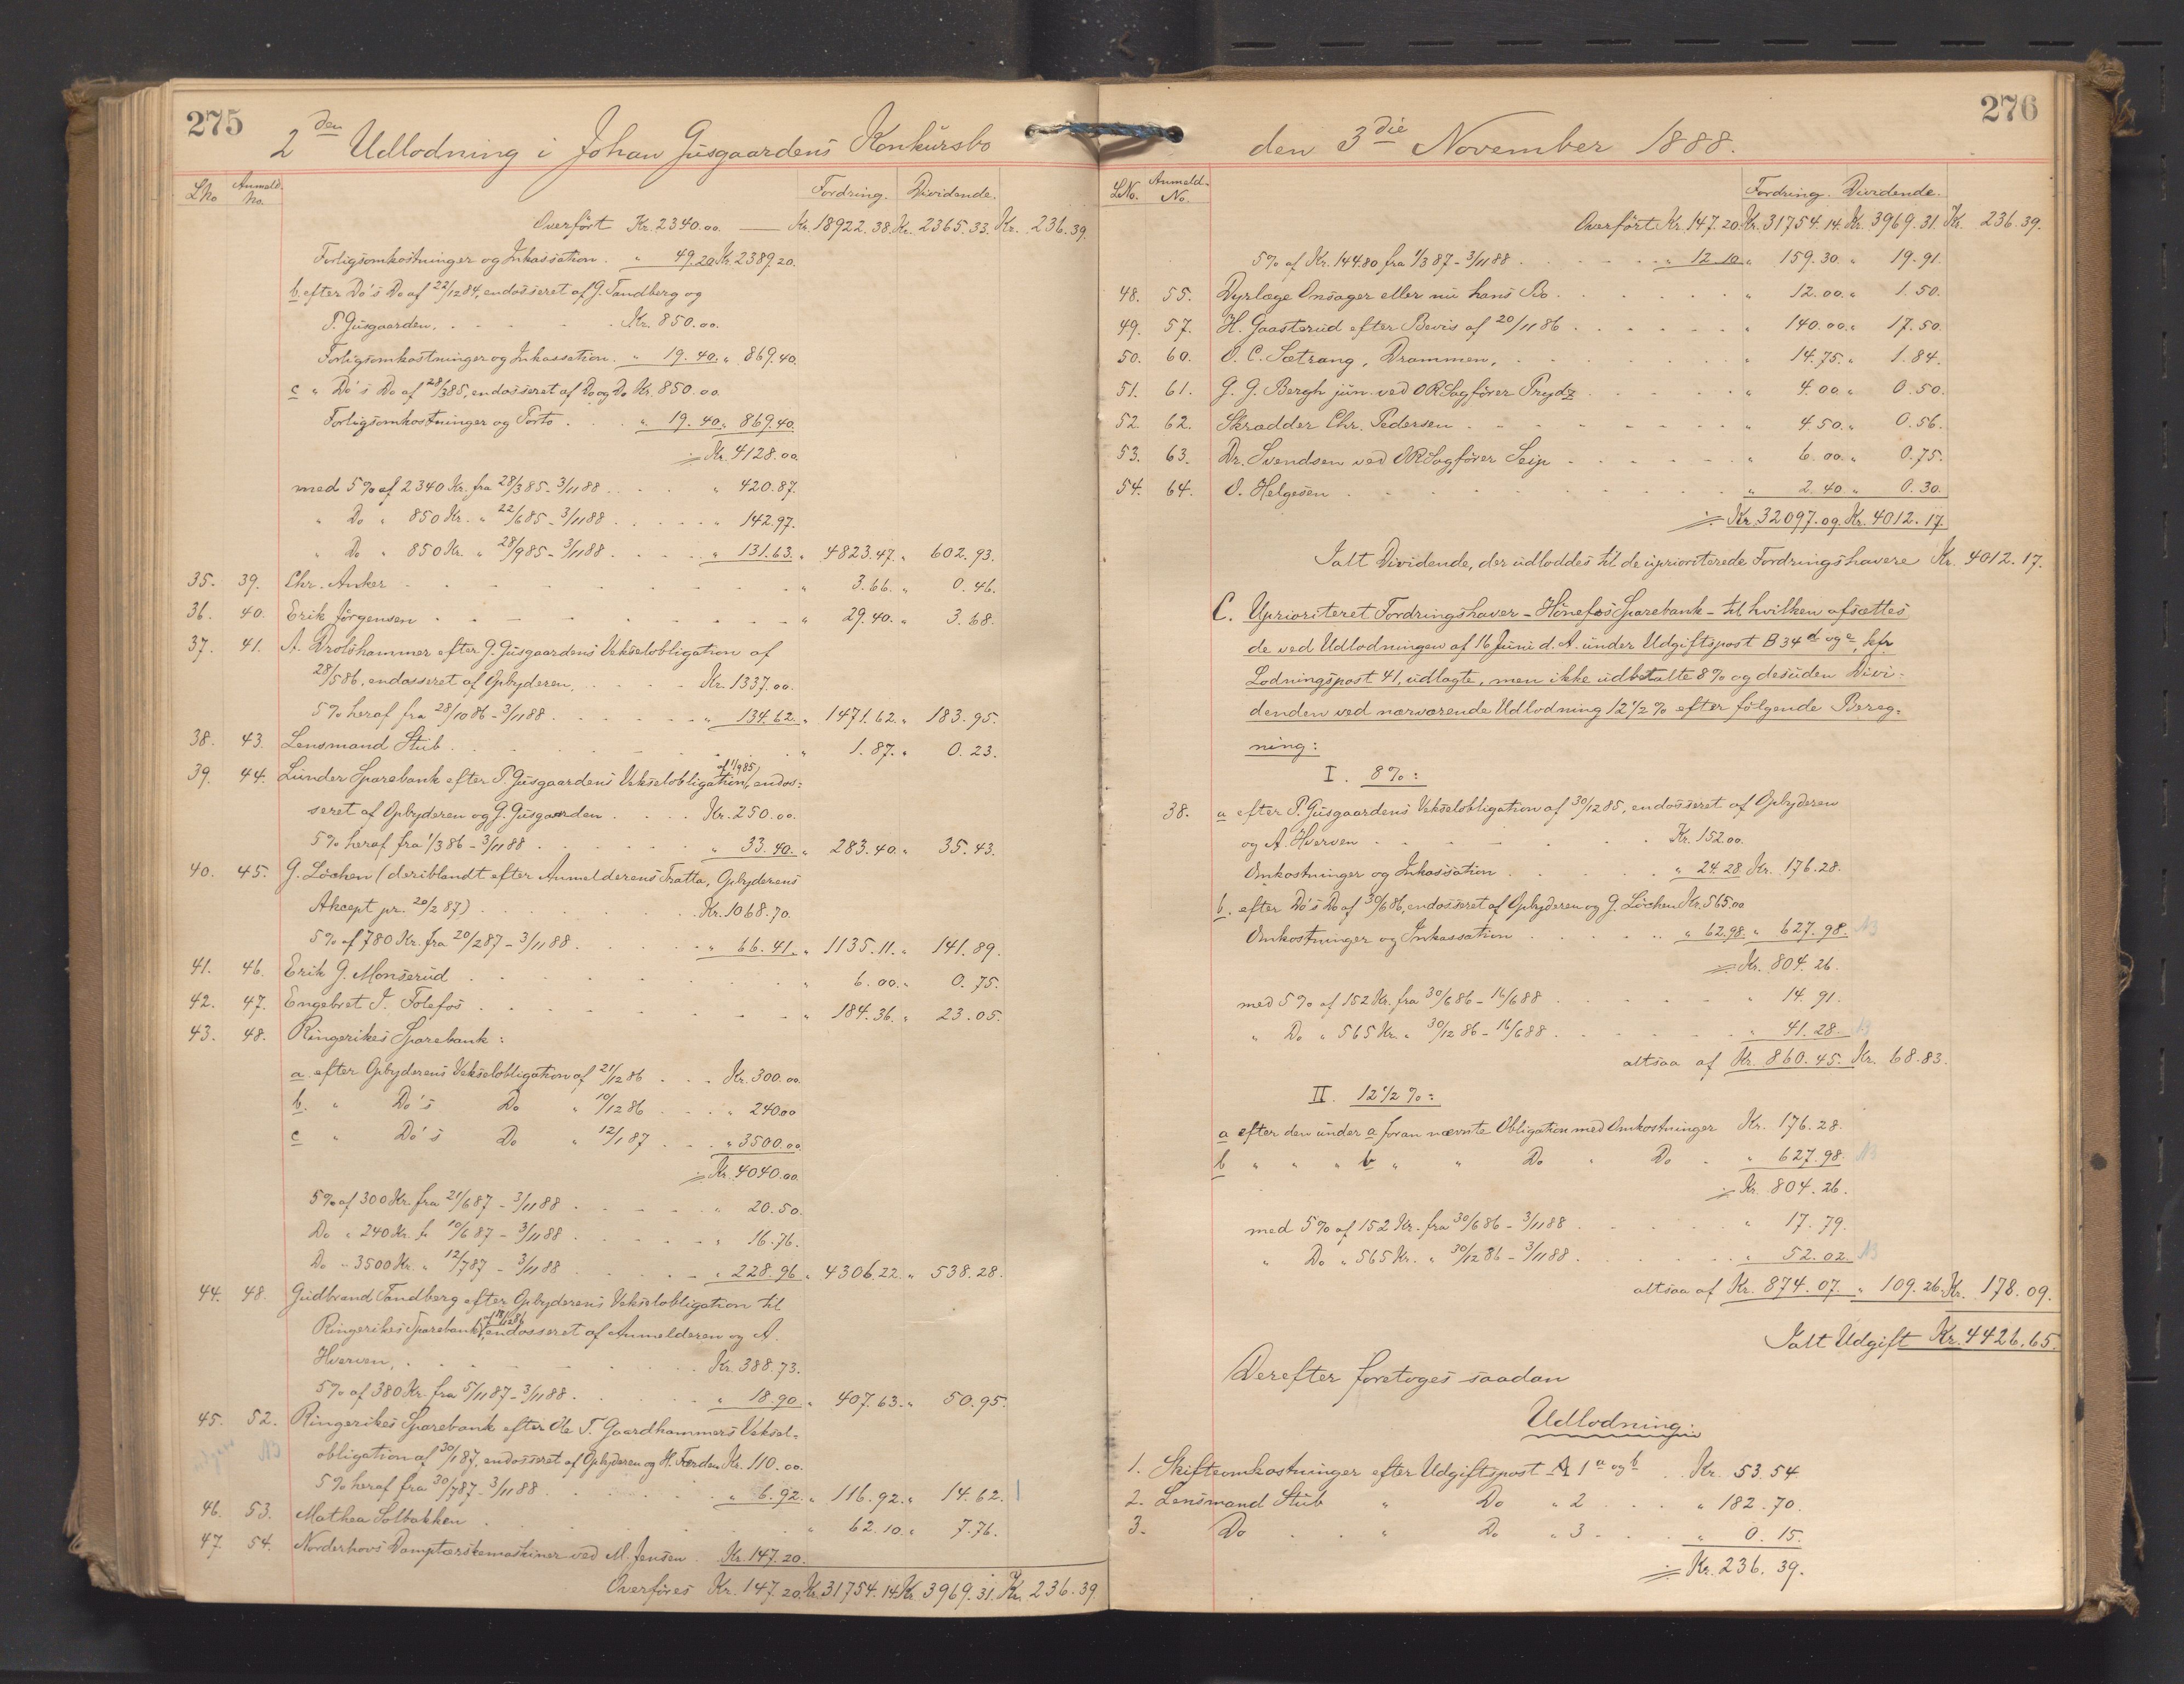 275
2den Udlodning i Johan Gusgaardens Konkursbo
L No Anmeld. No. Fordring. Dividende.
Overført Kr. 2340.00 — Kr. 18922.38. Kr. 2365.33. Kr. 236.39.
Forligsomkostninger og Inkassation. " 49.20 Kr. 2389.20.
b. efter Do's Do af 22/12 84, endosseret af G. Tandberg og
P. Gusgaarden. Kr. 850.00.
Forligsomkostninger og Inkassation. " 19.40. " 869.40.
c " Do's Do af 28/3 85, endosseret af Do og Do Kr. 850.00
Forligsomkostninger og Porto . . . " 19.40. " 869.40.
÷ Kr. 4128.00.
med 5% af 2340 Kr. fra 28/3 85 - 3/11 88 . . . " 420.87.
" Do " 850 Kr. " 22/6 85 - 3/11 88 . . . . . " 142.97.
" Do " 850 Kr. " 28/9 85 - 3/11 88 . . . . " 131.63. " 4823.47. " 602.93.
35. 39. Chr. Anker . . . " 3.66. " 0.46.
36. 40. Erik Jørgensen . . . " 29.40. " 3.68.
37. 41. A. Drolshammer efter G. Gusgaardens Vekselobligation af
28/5 86, endosseret af Opbyderen, . . . Kr. 1337.00.
5% heraf fra 28/10 86 - 3/11 88 . . . " 134.62. " 1471.62. " 183.95.
38. 43. Lensmand Stub . . . " 1.87. " 0.23.
39. 44. Lunder Sparebank efter P. Gusgaardens Vekselobligation af 1/9 85, endos=
seret af Opbyderen og G. Gusgaarden . . . Kr. 250.00.
5% heraf fra 1/3 86 - 3/11 88 . . . " 33.40. " 283.40. " 35.43.
40. 45. G. Løchen (deriblandt efter Anmelderens Tratta, Opbyderens
Akcept pr. 20/2 87) . . . Kr. 1068.70.
5% af 780 Kr. fra 20/2 87 - 3/11 88 . . . " 66.41. " 1135.11. " 141.89.
41. 46. Erik G. Monserud . . . " 6.00. " 0.75.
42. 47. Engebret I. Tolefos . . . " 184.36. " 23.05.
43. 48. Ringerikes Sparebank:
a. efter Opbyderens Vekselobligation af 21/12 86 . . . Kr. 300.00.
b. " Do's Do " 10/12 86 . . . " 240.00
c " Do's Do " 12/1 87 . . . " 3500.00.
÷ Kr. 4040.00
5% af 300 Kr. fra 21/6 87 - 3/11 88 . . . " 20.50.
Do " 240 Kr. fr 10/6 87 - 3/11 88 . . . " 16.76.
Do " 3500 Kr. " 12/7 87 - 3/11 88 . . . " 228.96 " 4306.22. " 538.28.
44. 48. Gudbrand Tandberg efter Opbyderens Vekselobligation til
Ringerikes Sparebank, endosseret af Anmelderen og A.
Hverven, . . . Kr. 388.73.
5% af 380 Kr. fra 5/11 87 - 3/11 88 . . . " 18.90. " 407.63. " 50.95.
45. 52. Ringerikes Sparebank efter Ole T. Gaardhammers Veksel=
obligation af 30/1 87, endosseret af Opbyderen og H. Færden Kr. 110.00.
5% heraf fra 30/7 87 - 3/11 88 . . . " 6.92. " 116.92. " 14.62.
46. 53. Mathea Solbakken . . . " 62.10. " 7.76.
47. 54. Norderhovs Damptærskemaskiner ved M. Jensen . Kr. 147.20.
Overføres Kr. 147.20. Kr. 31754.14. Kr. 3969.31. Kr. 236.39
276
den 3die November 1888.
L No. Anmeld. No. Fordring. Dividende.
Overført Kr. 147.20. Kr. 31754.14. Kr. 3969.31. Kr. 236.39.
5% af Kr. 144.80 fra 1/3 87 - 3/11 88 . . . " 12.10 " 159.30. " 19.91.
48. 55. Dyrlæge Onsager eller nu hans Bo . . . " 12.00. " 1.50.
49. 57. H. Gaasterud efter Bevis af 20/11 86 . . . " 140.00. " 17.50.
50. 60. O. C. Sætrang, Drammen, . . . " 14.75. " 1.84.
51. 61. G. G. Bergh jun. ved ORSagfører Prydz . . . " 4.00. " 0.50.
52. 62. Skrædder Chr. Pedersen . . . " 4.50. " 0.56.
53. 63. Dr. Svendsen ved ORSagfører Seip . . . " 6.00. " 0.75.
54. 64. O. Helgesen . . . " 2.40. " 0.30.
÷ Kr. 32097.09. Kr. 4012.17.
Ialt Dividende, der udloddes til de uprioriterede Fordringshavere Kr. 4012.17.
C. Uprioriteret Fordringshaver - Hønefos Sparebank - til hvilken afsættes
de ved Udlodningen af 16 Juni d. A. under Udgiftspost B 34 d og e, kfr
Lodningspost 41, udlagte, men ikke udbetalte 8% og desuden Divi=
denden ved nærværende Udlodning 12 1/2 % efter følgende Bereg=
ning:
I. 8%:
38. a efter P. Gusgaardens Vekselobligation af 30/12 85, endosseret af Opbyderen
og A. Hverven . . . Kr. 152.00.
Omkostninger og Inkassation . . . " 24.28. Kr. 176.28.
b. efter Do's Do af 30/6 86, endosseret af Opbyderen og G. Løchen Kr. 565.00
Omkostninger og Inkassation . . . " 62.98. " 627.98. NB
÷ Kr. 804.26.
med 5% af 152 Kr. fra 30/6 86 - 16/6 88 . . . " 14.91.
" Do " 565 Kr. " 30/12 86 - 16/6 88 . . . " 41.28. NB
altsaa af Kr. 860.45. Kr. 68.83.
II. 12 1/2 %:
a efter den under a foran nævnte Obligation med Omkostninger Kr. 176.28.
b " " " b " " Do " Do . " 627.98. NB
÷ Kr. 804.26.
med 5% af 152 Kr. fra 30/6 86 - 3/11 88 . . . " 17.79.
" Do " 565 Kr. " 30/12 86 - 3/11 88 . . . " 52.02. NB
altsaa af Kr. 874.07. " 109.26. Kr. 178.09.
Ialt Udgift Kr. 4426.65.
Derefter foretoges saadan
Udlodning:
1. Skifteomkostninger efter Udgiftspost A 1 a og b . Kr. 53.54
2. Lensmand Stub " Do " 2 . . . " 182.70.
3. Do . . " Do " 3 . . . " 0.15.
÷ Kr. 236.39.